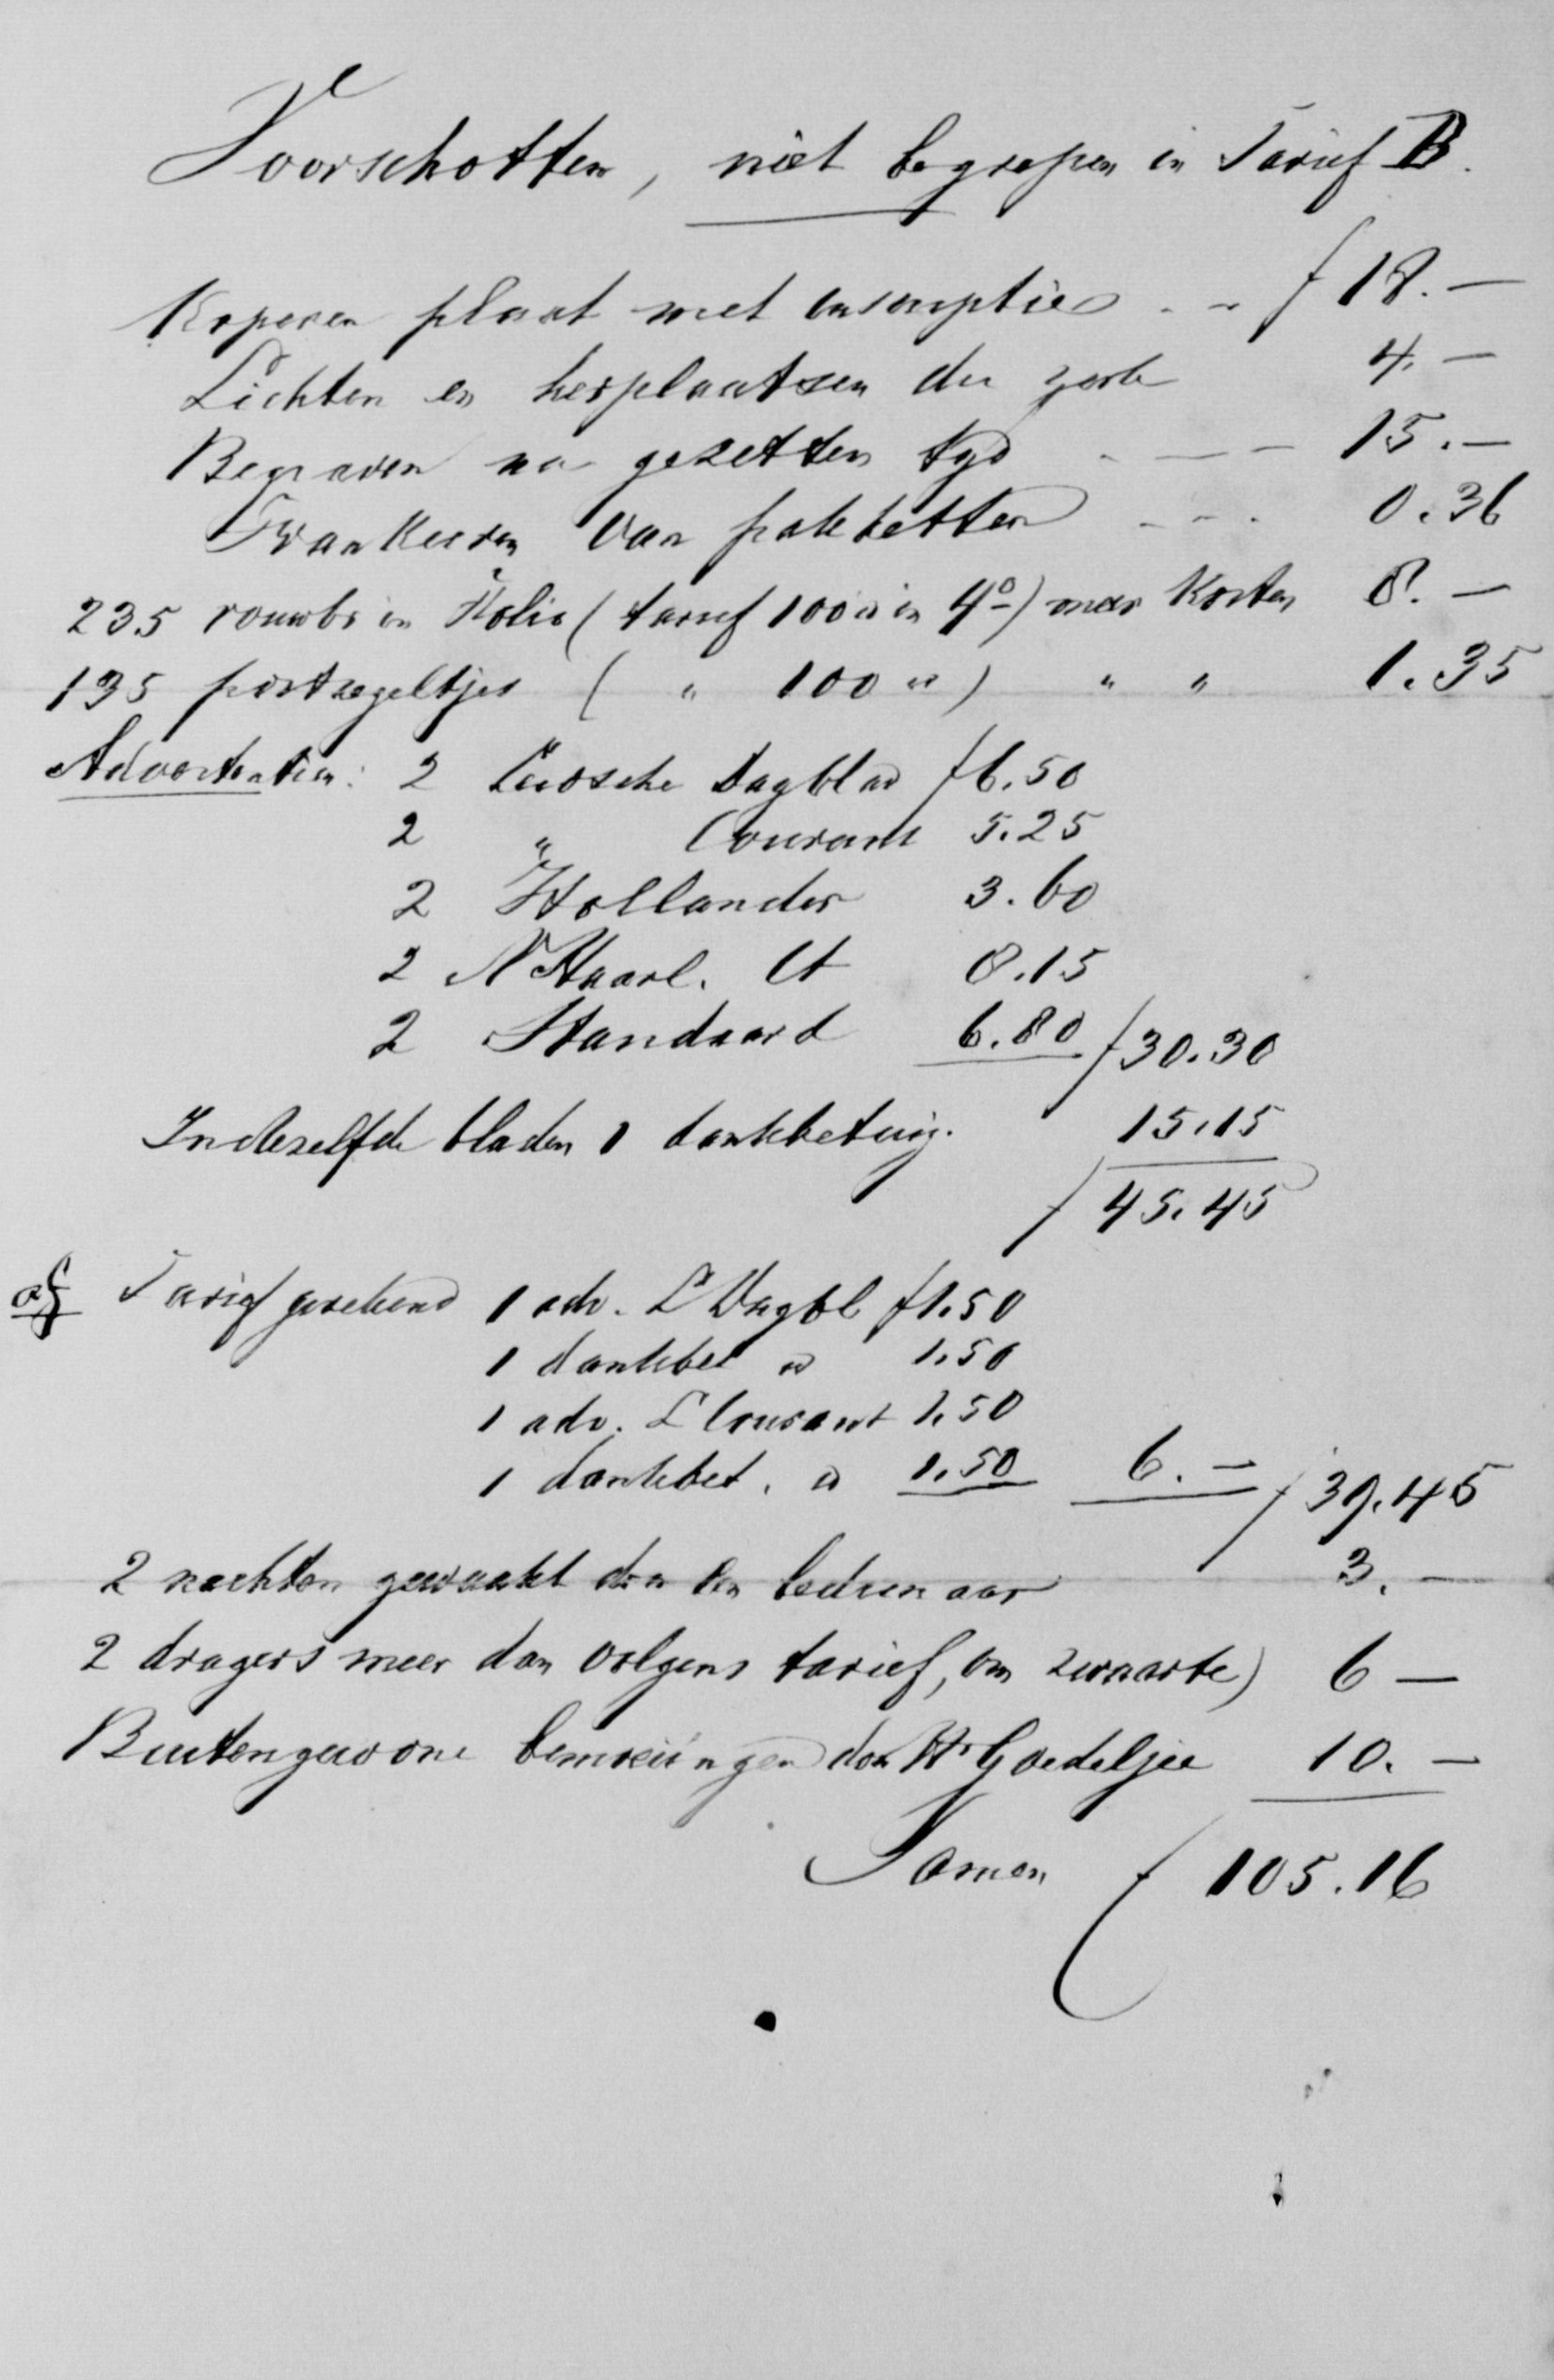 Voorschotten, niet begrepen in Tarief B.
Koperen plaat met inscripties . . f 18.—
Lichten en herplaatsen der zerk 4.—
Begraven na gezetten tyd . — — 15.—
Frankeeren van pakketten - - . 0.36
235 rouwbr in Folio (tarief 100 id in 4º) meer Kosten 8.—
135 postzegeltjes ( " 100 id ) " " 1.35
Advertentien: 2 Leidsche Dagblad f 6.50
2 " Courant 5.25
2 Hollander 3.60
2 N Haarl. Ct 8.15
2 Standaard 6.80 f 30.30
In dezelfde bladen 1 dankbetuig. 15.15
f 45.45
af Tarief gerekend 1 adv. L Dagbl f 1.50
1 dankbet id 1.50
1 adv. L Courant 1.50
1 dankbet. id 1.50 6.— f 39.45
2 nachten gewaakt door den bedienaar 3.—
2 dragers meer dan volgens tarief, om zwaarte) 6—
Buitengewone bemoeiingen door Hr Goedeljee 10.—
Samen f 105.16